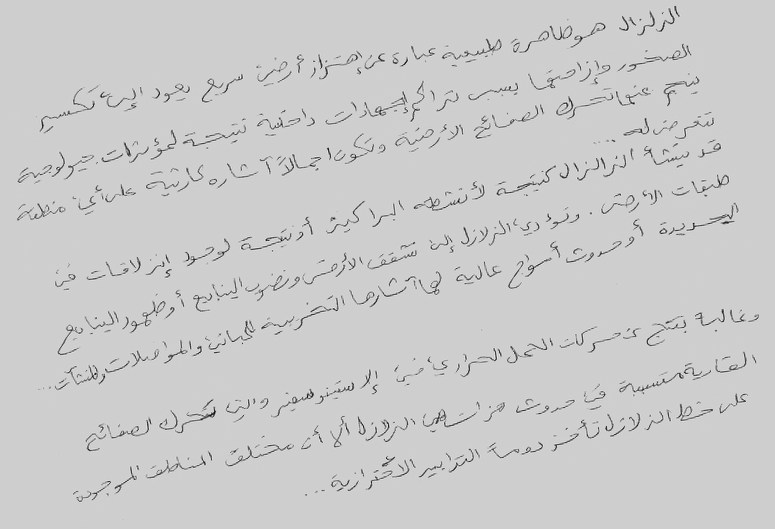 الزلزال هو ظاهرة طبيعية عبارة عن إهتزاز أرضي سريع يعود إلى تكسير
الصخور وإزاحتها بسبب تراكم إجهادات داخلية نتيجة لمؤثرات جيولوجية
ينجم عنها تحرك الصفائح الأرضية وتكون اجمالاً آثاره كارثية على أي منطقة
تتعرض له ...
قد ينشأ الزلزال كنتيجة لأنشطة البراكين أو نتيجة لوجود إنزلاقات في
طبقات الأرض. وتؤدي الزلازل إلى تشقق الأرض ونضوب الينابيع أو ظهور الينابيع
الجديدة أو حدوث أمواج عالية لها آثارها التخريبية للمباني والمواصلات والمنشآت...
وغالبا ينتج عن حركات الحمل الحراري في والتي تحرك الصفائح
القارية متسببة في حدوث هزات هي الزلازل ألا أن مختلف المناطق الموجودة
على خط الزلازل تأخذ دوماً التدابير الاحترازية ...